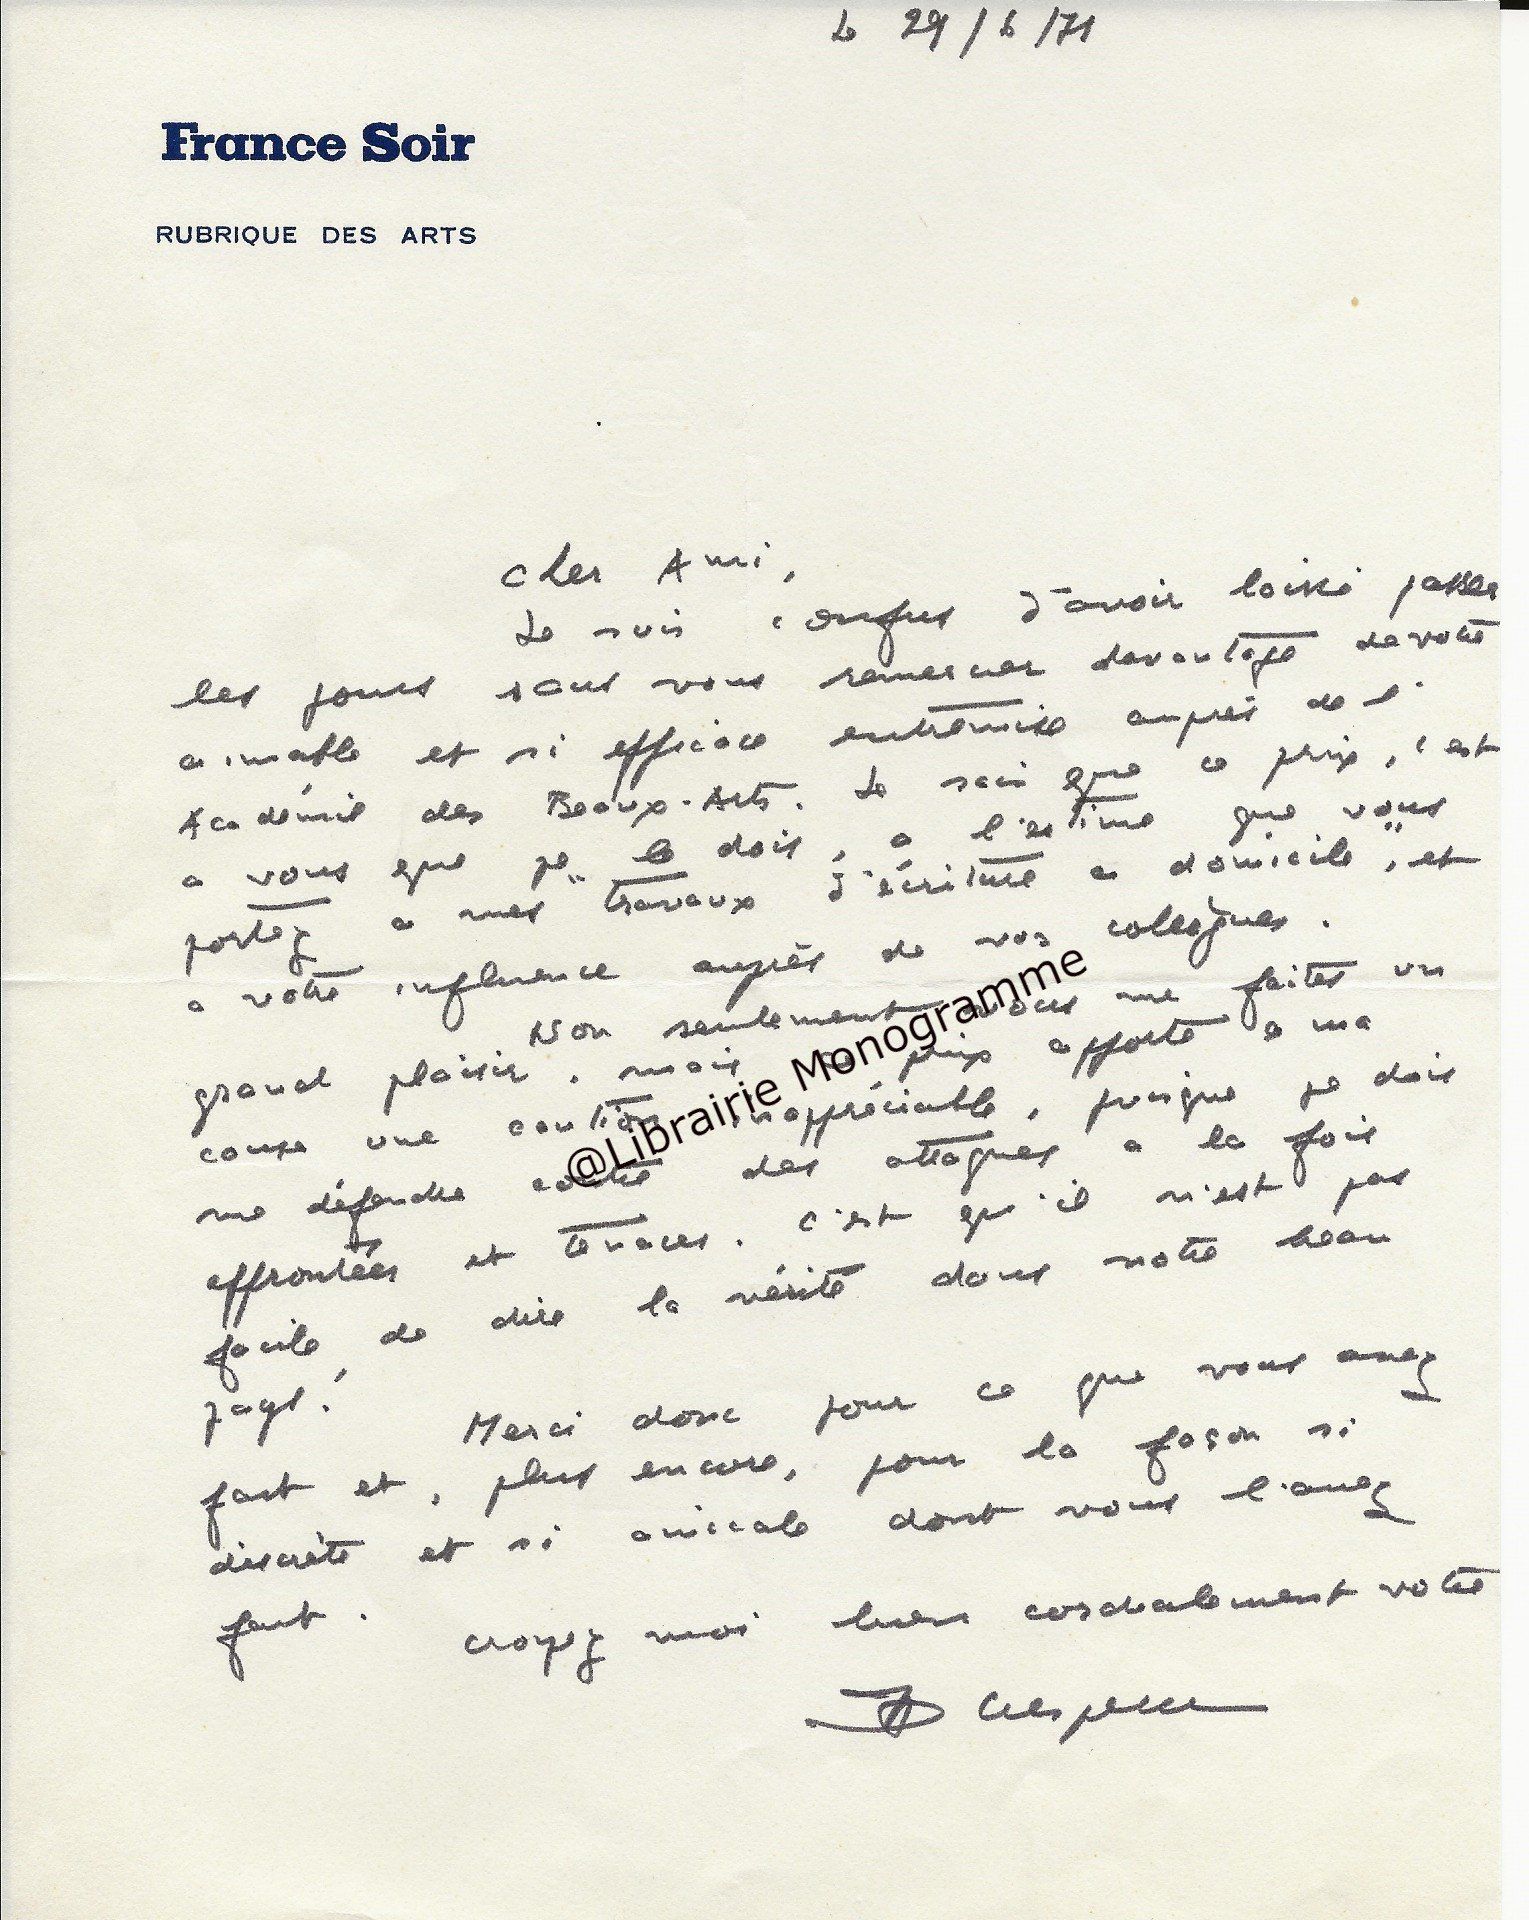 Le 29/6/71
France Soir
RUBRIQUE DES ARTS
Cher Ami,
Je suis confus d'avoir laissé passer
les jours sans vous remercier davantage de votre
aimable et si efficace entremise auprès de l'
Académie des Beaux-Arts. Je sais que ce prix, c'est
a vous que je le dois, a l'estime que vous
portez a mes "travaux d'écriture a domicile", et
a votre influence auprès de vos collègues.
Non seulement vous me faites un
grand plaisir, mais ce prix apporte a ma
cause une caution inappréciable, puisque je dois
me défendre contre des attaques a la fois
effrontées et tenaces. C'est qu'il n'est pas
facile de dire la vérité dans notre beau
pays!
Merci donc pour ce que vous avez
fait et, plus encore, pour la façon si
discrète et si amicale dont vous l'avez
fait.
Croyez moi bien cordialement votre
JP Crespelle
@Librairie Monogramme